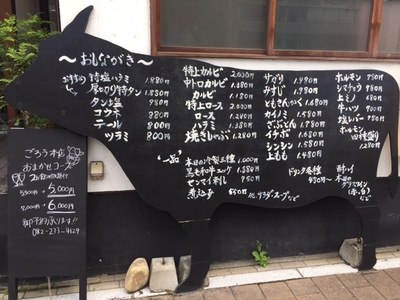 〜おしながき〜
特塩ハラミ 1,880円
厚切り特タン 1,880円
タン塩 980円
コウネ 880円
ミール 800円
ツラミ 880円
特上カルビ 2,000円
中トロカルビ 1,680円
カルビ 1,180円
特上ロース 2,000円
ロース 1,280円
ハラミ 1,180円
焼きしゃぶ 1,280円
サガリ 1,990円
みすじ 1,980円
ともさんかく 1,680円
カイノミ 1,580円
ざぶとん 1,680円
イチボ 1,680円
シンシン 1,580円
上もも 1,480円
ホルモン 750円
シマチョウ 980円
上ミノ 680円
牛ハツ 900円
塩レバー 780円
ホルモン
四種盛り
1,280円
一品
本日の冷製三種 1,000円
黒毛和牛ユッケ 1,580円
センマイ刺し 750円
煮込み 650円
他、サラダ、スープなど
ドリンク各種
450円〜
酎ハイ
ごろう本店
おまかせコース
5,000円
6,000円
御予約承ります!!
082-233-4129